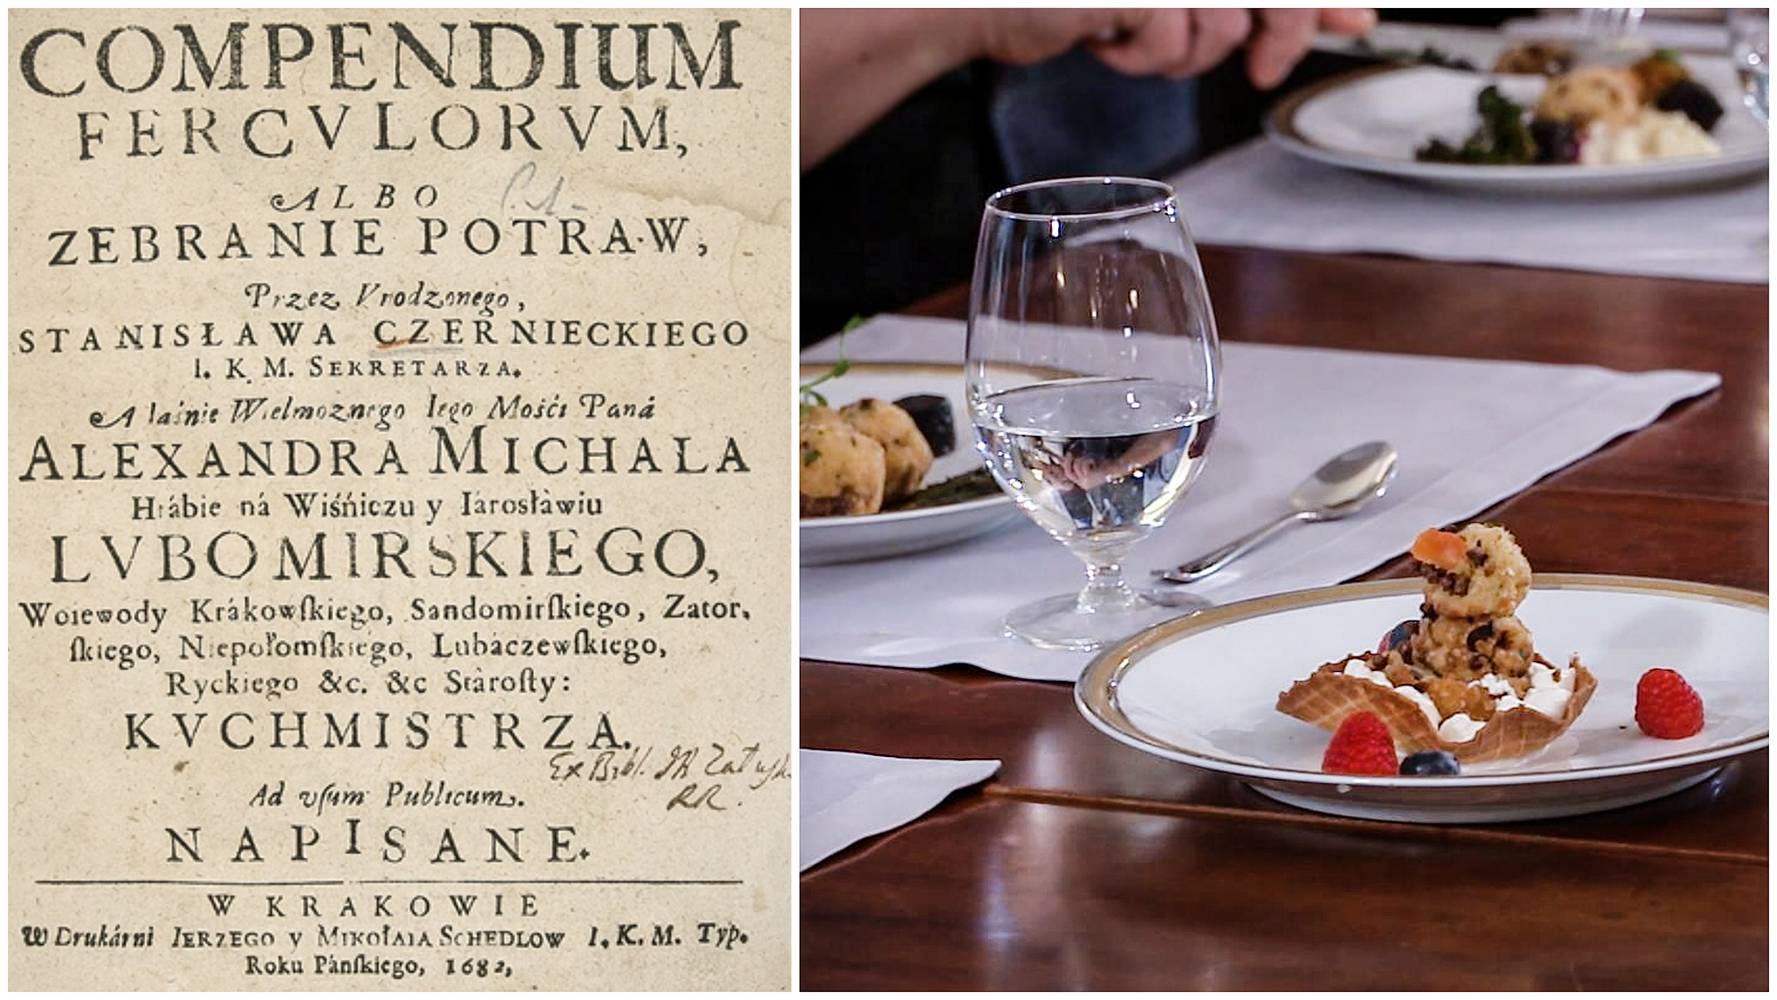 COMPENDIUM
FERCVLORVM,
ALBO
ZEBRANIE POTRAW,
Przez Vrodzonego,
STANISŁAWA CZERNIECKIEGO
I. K. M. SEKRETARZA.
A Iaśnie Wielmożnego Iego Mości Páná
ALEXANDRA MICHALA
Hrábie ná Wiśńiczu y Iarosłáwiu
LVBOMIRSKIEGO,
Woiewody Krákowſkiego, Sandomirſkiego, Zator.
ſkiego, Niepołomſkiego, Lubáczewſkiego,
Ryckiego &c. &c Stároſty:
KVCHMISTRZA.
Ex Bibl.
Ad vſum Publicum.
NAPISANE.
W KRAKOWIE
W Drukárni IERZEGO y MIKOŁAIA SCHEDLOW I. K. M. Typ.
Roku Páńſkiego, 1682,